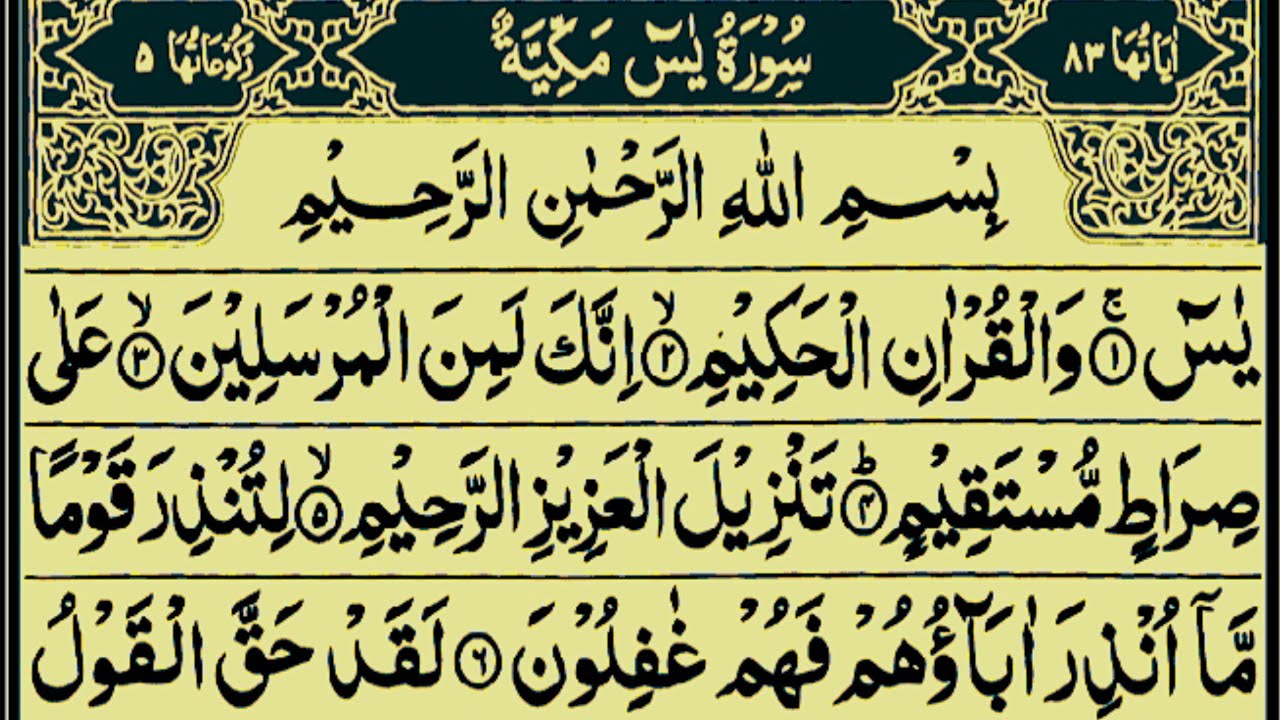 اٰيَاتُهَا ٨٣ سُوْرَةُ يٰسٓ مَكِّيَّةٌ رُكُوْعَاتُهَا ٥
بِسْمِ اللّٰهِ الرَّحْمٰنِ الرَّحِيْمِ
يٰسٓ ۚ﴿١﴾ وَالْقُرْاٰنِ الْحَكِيْمِ ۙ﴿٢﴾ اِنَّكَ لَمِنَ الْمُرْسَلِيْنَ ۙ﴿٣﴾ عَلٰى
صِرَاطٍ مُّسْتَقِيْمٍ ؕ﴿۴﴾ تَنْزِيْلَ الْعَزِيْزِ الرَّحِيْمِ ۙ﴿۵﴾ لِتُنْذِرَ قَوْمًا
مَّآ اُنْذِرَ اٰبَآؤُهُمْ فَهُمْ غٰفِلُوْنَ ﴿۶﴾ لَقَدْ حَقَّ الْقَوْلُ